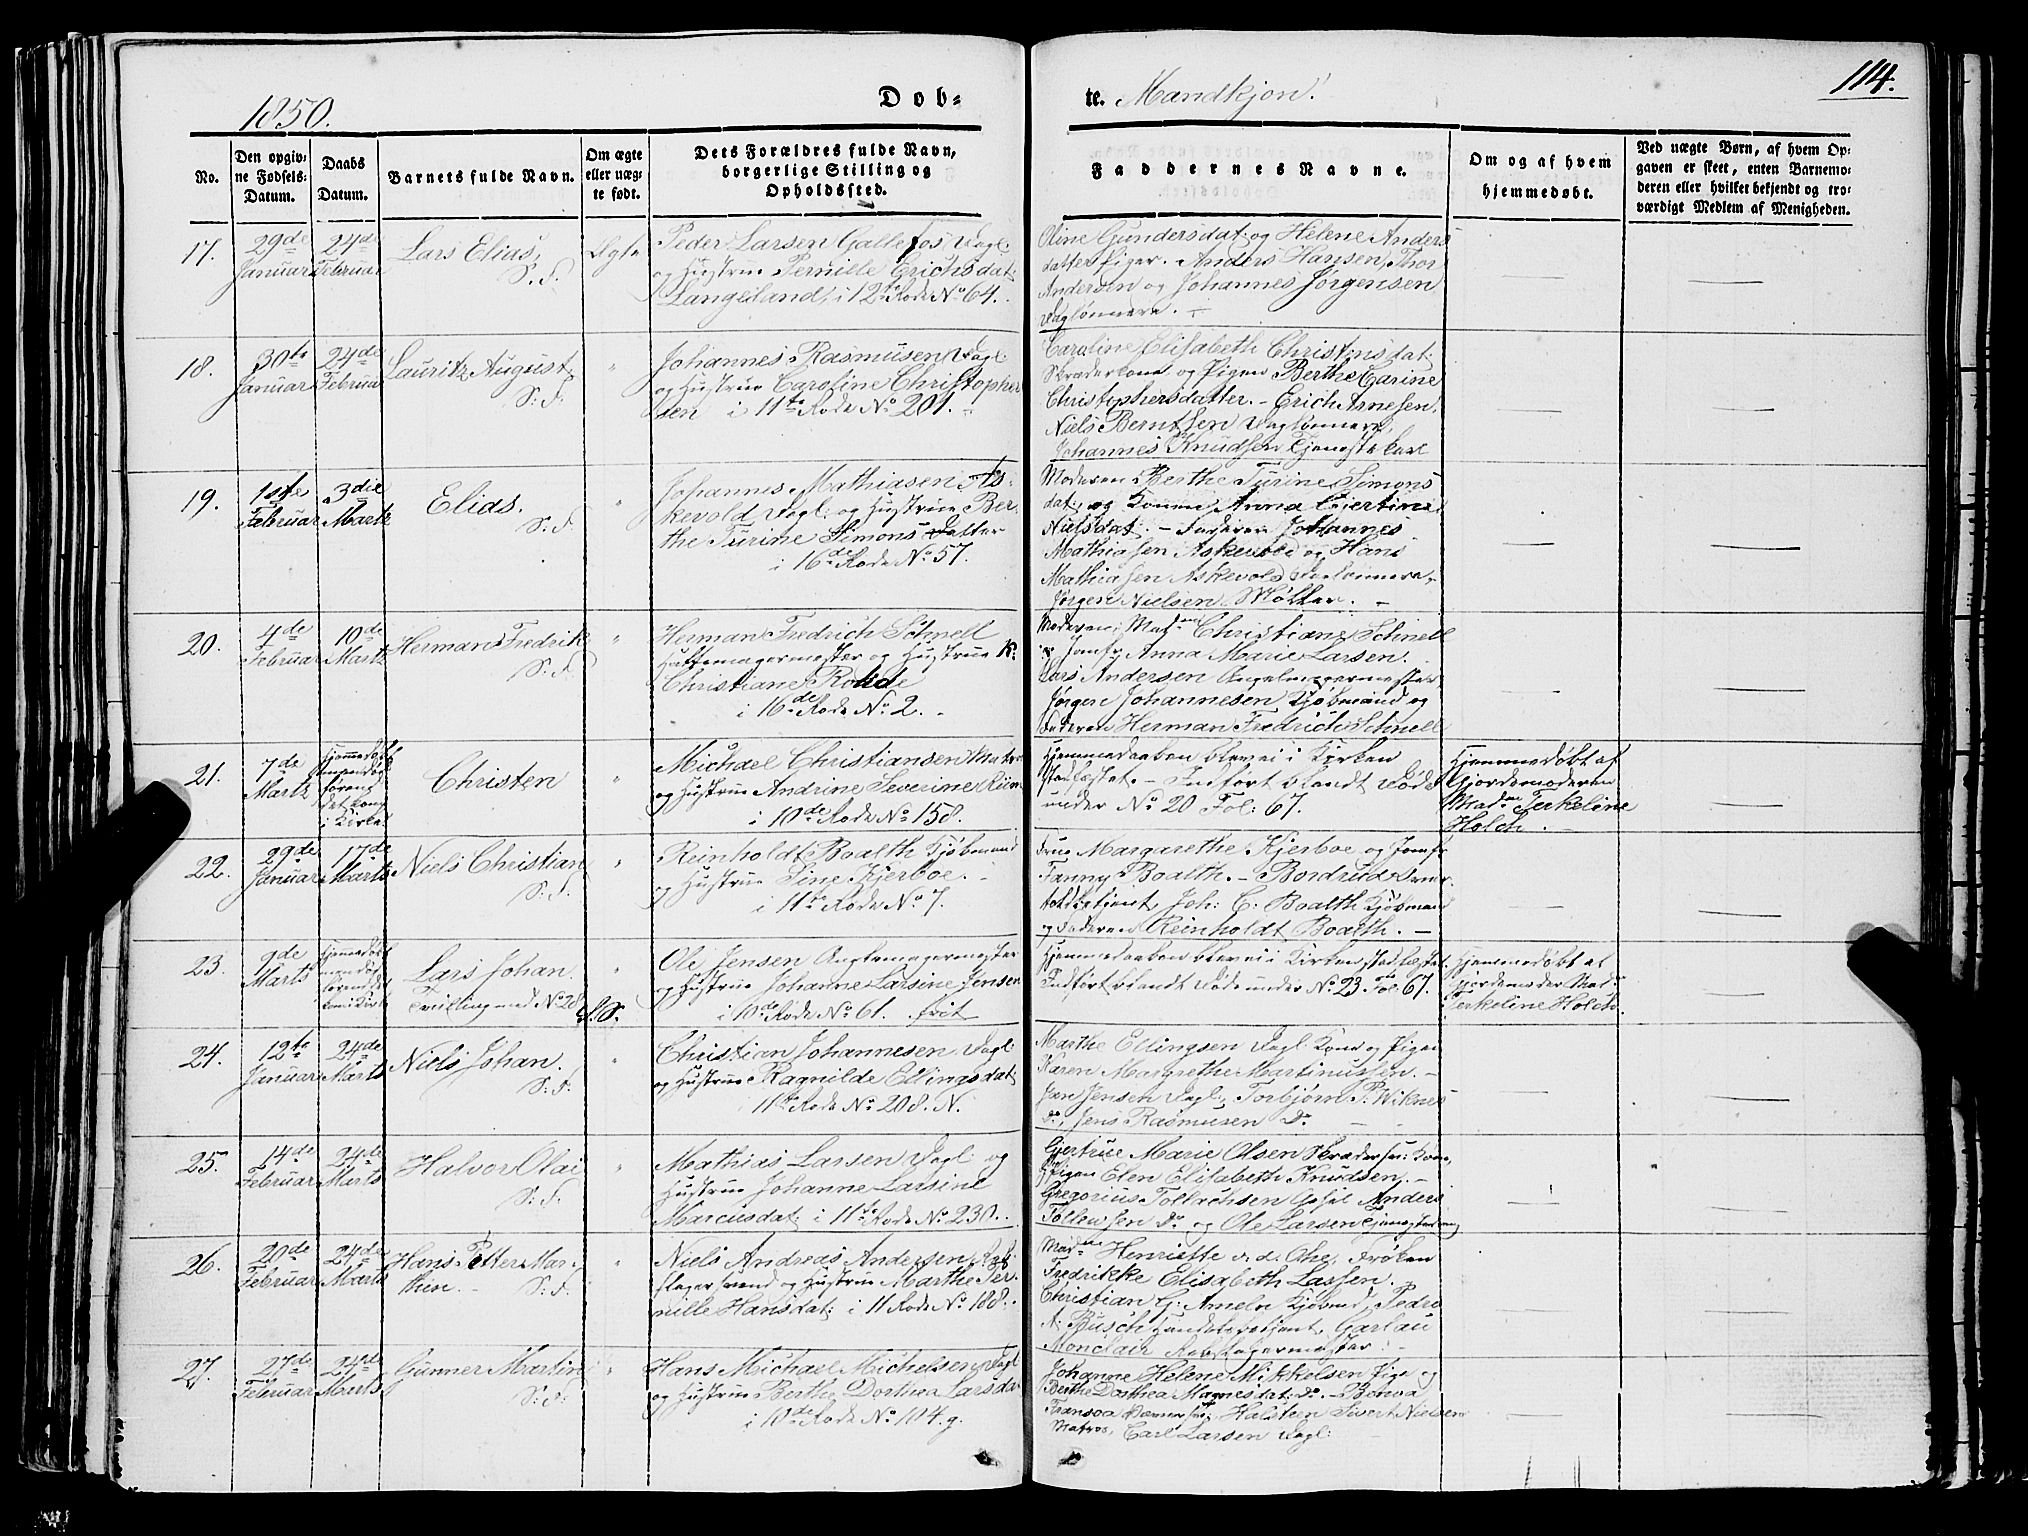 1850.
Døb-
te. Mandkjøn.
114.
No.
Den opgiv-
ne Fødsels-
Datum.
Daabs
Datum.
Barnets fulde Navn.
Om ægte
eller uæg-
te født.
Dets Forældres fulde Navn,
borgerlige Stilling og
Opholdssted.
Faddernes Navne.
Om og af hvem
hjemmedøbt.
Ved uægte Børn, af hvem Op-
gaven er skeet, enten Barnemo-
deren eller hvilket bekjendt og tro-
værdigt Medlem af Menigheden.
17.
29de
Januar
24de
Februar
Lars Elias,
S. F.
Ægte
Peder Larsen Dagl:
og Hustrue Pernille Erichsdat:
Langeland, i 12te Rode No 64.
Oline Gundersdat: og Helene Anders
datter Piger. Anders Hansen, Thor
Andersen og Johannes Jørgensen
Daglønnere.
18.
30te
Januar
24de
Februar
Lauritz August
S: F.
"
Johannes Rasmusen Dagl:
og Hustrue Caroline Christopher
sen i 11te Rode No 201.
Caroline Elisabeth Christensdat:
Skræderkone og Pigen Berthe Carine
Christophersdatter. - Erich Arnesen,
Niels Berntsen Daglønnere,
Johannes Knudsen Tjenestekarl
19.
1ste
Februar
3die
Marts
Elias.
S: F.
"
Johannes Mathiasen As-
kevold Dagl: og Hustrue Ber-
the Turine Simons Datter
i 16de Rode No 57.
Moderen Berthe Turine Simons
dat: og Konen Anna Giertine
Nielsdat: - Faderen Johannes
Mathiasen Askevold og Hans
Mathiasen Askevold Daglønnere,
Jørgen Nielsen Møller. -
20.
4de
Februar
10de
Marts
Herman Fredrik
S: F.
"
Herman Fredrich Schnell
Hattemagermester og Hustrue K:
Christiane Rohde
i 16de Rode No 2. -
Moderen, Mad. Christiane Schnell
og Jomfr Anna Marie Larsen.
Lars Andersen
Jørgen Johannesen Kjøbmand og
Faderen Herman Fredrich Schnell
21.
7de
Marts
Hjemmedøbt
men døde
førend
det kom
i Kirke
Christen
"
Michael Christiansen Matros
og Hustrue Andrine Severine
i 10de Rode No 158.
Hjemmedaaben blev ei i Kirken
stadfæstet. - Indført blandt Døde
under No 20 Fol: 67.
Hjemmedøbt af
Gjordemoderen
Mad. Terkeline
Holch. -
22.
29de
Januar
17de
Marts
Niels Christian
S: F.
"
Reinholdt Boalth Kjøbmand
og Hustrue Sine Kjerboe. -
i 11te Rode No 7.
Frue Margarethe Kjerboe og Jomfr
Fanny Boalth. -
Joh: C. Boalth Kjøbmand
og Faderen Reinholdt Boalth. -
23.
9de
Marts
Hjemmedøbt
men døde
førend det
kom i Kirke
Lars Johan
Tvilling med No 28
"
Ole Jensen
og Hustrue Johanne Larsine Jensen
i 10de Rode No 61.
Hjemmedaaben blev ei i Kirken stadfæstet.
Indført blandt Døde under No 23 Fol 67.
Hjemmedøbt af
Gjordemoder Mad.
Terkeline Holch.
24.
12te
Januar
24de
Marts
Niels Johan.
S: F.
"
Christian Johannesen Dagl:
og Hustrue Ragnilde Ellingsdat:
11te Rode No 208. N.
Marthe Ellingsen Dagl: Kone og Pigen
Karen Margrethe Martinussen. -
Jan Jensen Dagl:, Torbjørn P. Wiknes
Do, Jens Rasmusen Do
25.
14de
Februar
24de
Marts
Halvor Olai
S: F.
"
Mathias Larsen Dagl: og
Hustrue Johanne Larsine
Marcusdat: i 11te Rode No 230.
Gjertrue Marie Olsen Skrædersv: Kone,
Pigen Elen Elisabeth Knudsen. -
Gregorius Tollachsen Anders
Tollewsen Do og Ole Larsen Tjenestedreng
26.
20de
Februar
24de
Marts
Hans Petter Mar-
thin. -
S: F.
"
Niels Andreas Andersen Reb-
slagersvend og Hustrue Marthe Per-
nille Hansdat: i 11 Rode No 188.
Mad. Henriette v. d. Ohe, Frøken
Fredrikke Elisabeth Lassen.
Christian G: Ameln Kjøbmd, Pedro
A: Busch Handelsbetjent, Garlau
Monclair Rebslagermester. -
27.
27de
Februar
24de
Marts
Gunner Martin
S: F.
"
Hans Michael Michelsen Dagl
og Hustrue Berthe Dorthea Larsda
i 10de Rode No 104. g.
Johanne Helene Mikkelsen Pige og
Berthe Dorthea Magnesdat: Do. -
Halsteen Sivert Nielsen
Matros, Carl Larsen Dagl: